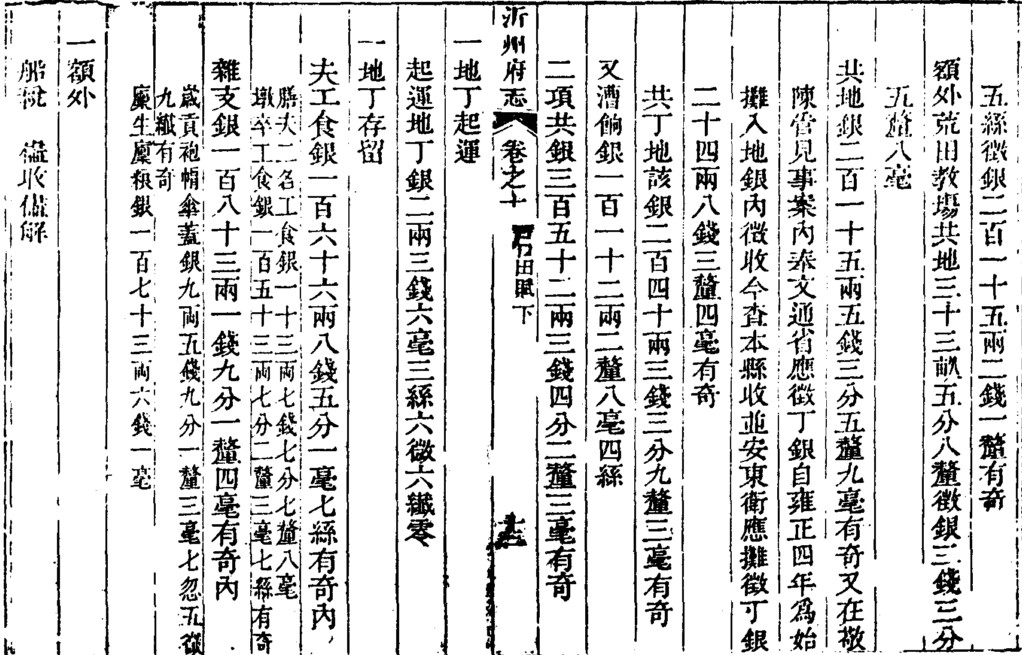 五絲徵銀二百一十五兩二錢一釐有奇
額外荒田敎塲共地三十三畝五分八釐徵銀三錢三分
五釐八毫
共地銀二百一十五兩五錢三分五釐九毫有奇又在敬
陳管見事案內奉文通省應徵丁銀自雍正四年爲始
攤入地銀內徵收今査本縣收並安東衛應攤徵丁銀
二十四兩八錢三釐四毫有奇
共丁地該銀二百四十兩三錢三分九釐三毫有奇
又漕餉銀一百一十二兩二釐八毫四絲
二項共銀三百五十二兩三錢四分二釐三毫有奇
沂州府志 卷之十 田賦下
一地丁起運
起運地丁銀二兩三錢六毫三絲六微六纖零
一地丁存留
夫工食銀一百六十六兩八錢五分一毫七絲有奇內
膳夫二名工食銀一十三兩七錢七分七釐八毫
墩卒工食銀一百五十三兩七分二釐三毫七絲有奇
雜支銀一百八十三兩一錢九分一釐四毫有奇內
歲貢袍帽傘蓋銀九兩五錢九分一釐三毫七忽五微
九纖有奇
廩生廩糧銀一百七十三兩六錢一毫
一額外
船稅 儘收儘解